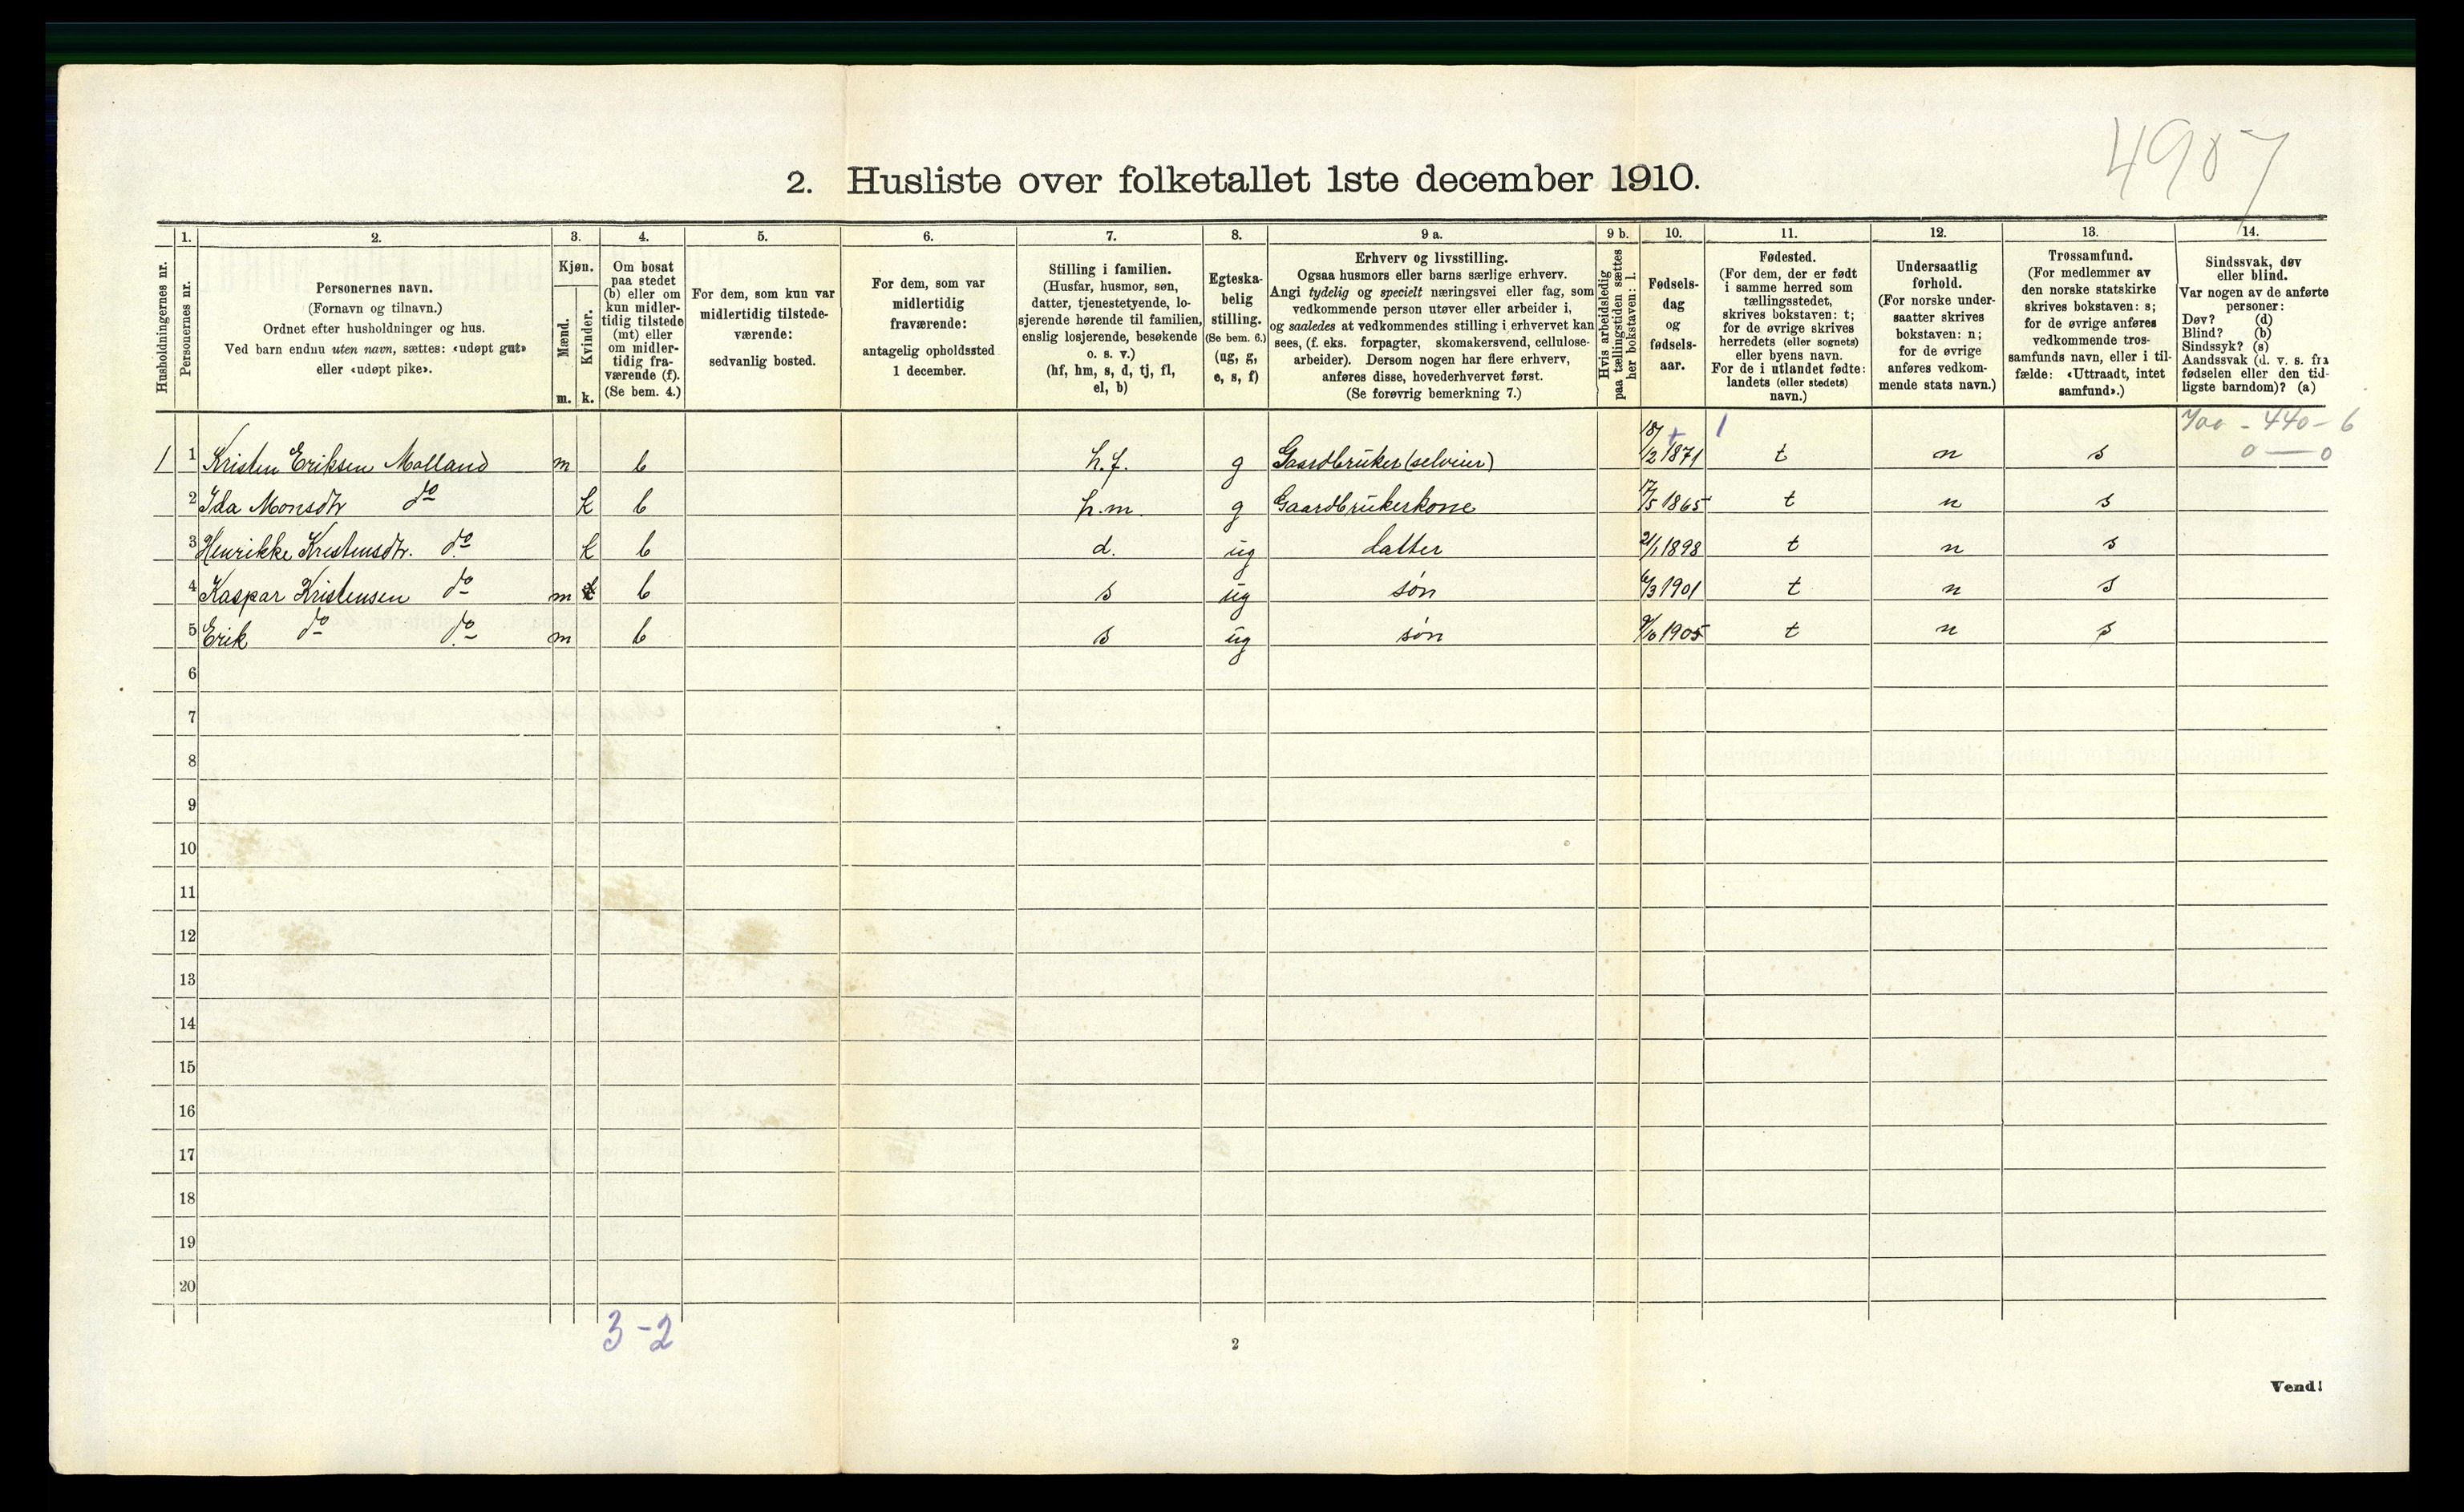 4907
2. Husliste over folketallet 1ste december 1910.
Husholdningernes nr.
1.
Personernes nr.
2.
Personernes navn.
(Fornavn og tilnavn.)
Ordnet efter husholdninger og hus.
Ved barn endnu uten navn, sættes: «udøpt gut»
eller «udøpt pike».
3.
Kjøn.
Mænd.
m.
Kvinder.
k.
4.
Om bosat
paa stedet
(b) eller om
kun midler-
tidig tilstede
(mt) eller
om midler-
tidig fra-
værende (f).
(Se bem. 4.)
5.
For dem, som kun var
midlertidig tilstede-
værende:
sedvanlig bosted.
6.
For dem, som var
midlertidig
fraværende:
antagelig opholdssted
1 december.
7.
Stilling i familien.
(Husfar, husmor, søn,
datter, tjenestetyende, lo-
sjerende hørende til familien,
enslig losjerende, besøkende
o. s. v.)
(hf, hm, s, d, tj, fl,
el, b)
8.
Egteska-
belig
stilling.
(Se bem. 6.)
(ug, g,
e, s, f)
9 a.
Erhverv og livsstilling.
Ogsaa husmors eller barns særlige erhverv.
Angi tydelig og specielt næringsvei eller fag, som
vedkommende person utøver eller arbeider i,
og saaledes at vedkommendes stilling i erhvervet kan
sees, (f. eks. forpagter, skomakersvend, cellulose-
arbeider). Dersom nogen har flere erhverv,
anføres disse, hovederhvervet først.
(Se forøvrig bemerkning 7.)
9 b.
Hvis arbeidsledig
paa tællingstiden sættes
her bokstaven: l.
10.
Fødsels-
dag
og
fødsels-
aar.
11.
Fødested.
(For dem, der er født
i samme herred som
tællingsstedet,
skrives bokstaven: t;
for de øvrige skrives
herredets (eller sognets)
eller byens navn.
For de i utlandet fødte:
landets (eller stedets)
navn.)
12.
Undersaatlig
forhold.
(For norske under-
saatter skrives
bokstaven: n;
for de øvrige
anføres vedkom-
mende stats navn.)
13.
Trossamfund.
(For medlemmer av
den norske statskirke
skrives bokstaven: s;
for de øvrige anføres
vedkommende tros-
samfunds navn, eller i til-
fælde: «Uttraadt, intet
samfund».)
14.
Sindssvak, døv
eller blind.
Var nogen av de anførte
personer:
Døv? (d)
Blind? (b)
Sindssyk? (s)
Aandssvak (d. v. s. fra
fødselen eller den tid-
ligste barndom)? (a)
700 - 440 - 6
0 — 0
1 1 Kristen Eriksen Molland m b h.f. g Gaardbruker (selveier) 18/12 1871 t n s
2 Ida Monsdtr do k b h.m. g Gaardbrukerkone 17/5 1865 t n s
3 Henrikke Kristensdtr. do k b d. ug datter 21/1 1898 t n s
4 Kaspar Kristensen do m b s ug søn 6/3 1901 t n s
5 Erik do do m b s ug søn 9/10 1905 t n s
6
7
8
9
10
11
12
13
14
15
16
17
18
19
20
3-2
2
Vend!